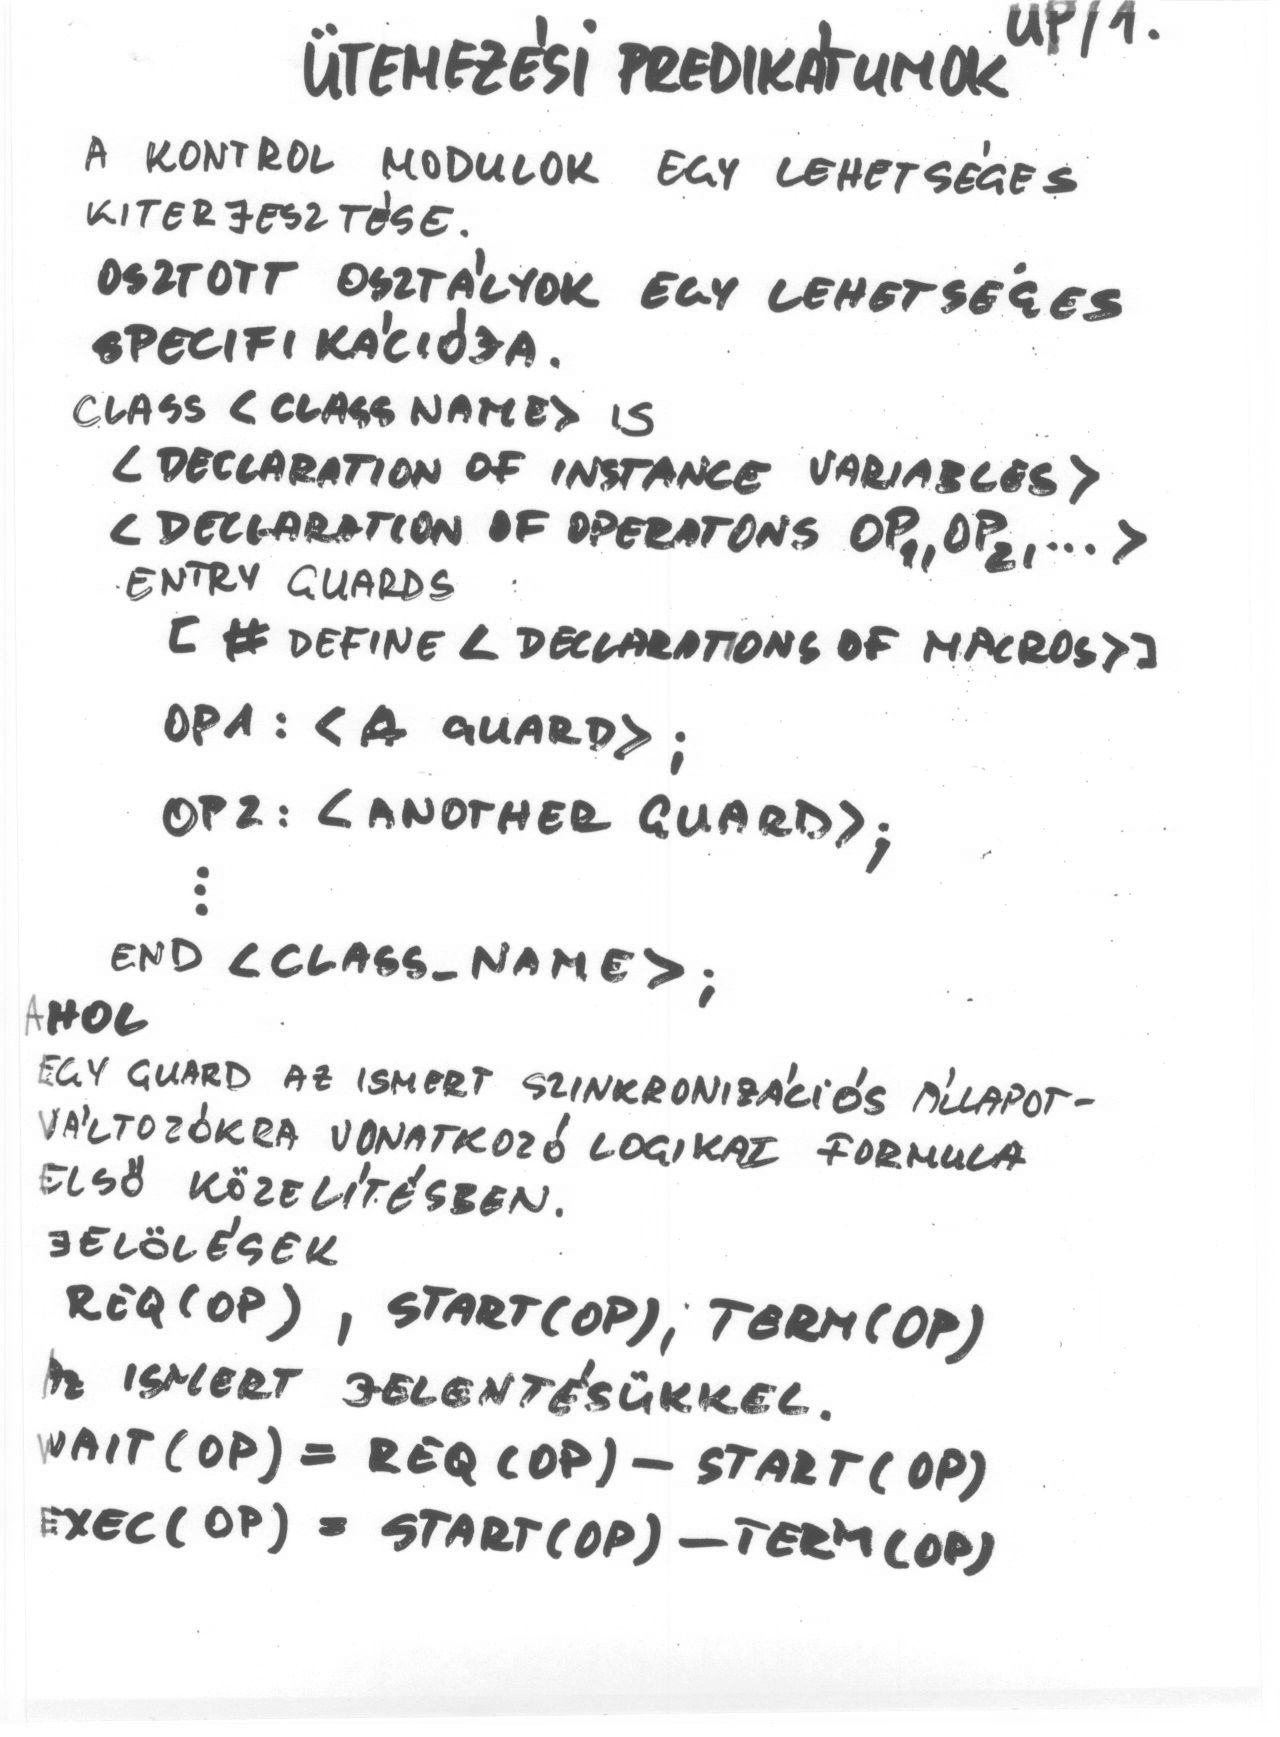 ÜP/1.
ÜTEMEZÉSI PREDIKÁTUMOK
A KONTROL MODULOK EGY LEHETSÉGES
KITERJESZTÉSE.
OSZTOTT OSZTÁLYOK EGY LEHETSÉGES
SPECIFIKÁCIÓJA.
CLASS <CLASS NAME> IS
<DECLARATION OF INSTANCE VARIABLES>
<DECLARATION OF OPERATONS OP1, OP2, ...>
ENTRY GUARDS
[ # DEFINE < DECLARATIONS OF MACROS>]
OP1: <A GUARD>;
OP2: <ANOTHER GUARD>;
⋮
END <CLASS_NAME>;
AHOL
EGY GUARD AZ ISMERT SZINKRONIZÁCIÓS ÁLLAPOT-
VÁLTOZÓKRA VONATKOZÓ LOGIKAI FORMULA
ELSŐ KÖZELÍTÉSBEN.
JELÖLÉSEK
REQ(OP), START(OP), TERM(OP)
AZ ISMERT JELENTÉSÜKKEL.
WAIT(OP) = REQ(OP) – START(OP)
EXEC(OP) = START(OP) – TERM(OP)